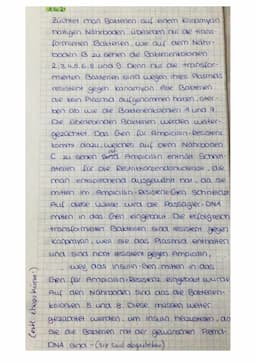 Züchtet man Bakterien auf einem Kanamycin
haltigen Nährboden, überleben nur die trans-
formierten Bakterien, wie auf dem Nähr-
boden B zu sehen die Bakterienkolonien
2, 3, 4, 5, 6, 8 und 9. Denn nur die transfor-
mierten Bakterien sind wegen ihres Plasmids
resistent gegen Kanamycin. Die Bakterien
die kein Plasmid aufgenommen haben, ster-
ben ab wie die Bakterienkolonien 1 und 7.
Die überlebenden Bakterien werden weiter-
gezüchtet. Das Gen für Ampicillin-Resistenz
kommt dazu, welches auf dem Nährboden
C zu sehen ist. Ampicillin enthält Schnitt-
stellen für die Restriktionsendonuklease, die
man entsprechend ausgewählt hat, da sie
mitten im Ampicillin-Resistenz-Gen schneidet.
Auf diese Weise wird die Passagier-DNA
mitten in das Gen eingebaut. Die erfolgreich
transformierten Bakterien sind resistent gegen
Kanamycin, weil sie das Plasmid enthalten
und sind nicht resistent gegen Ampicillin,
weil das Insulin-Gen mitten in das
Gen für Ampicillin-Resistenz eingebaut wurde.
Auf den Nährboden sind das die Bakterien-
kolonien 5 und 8. Diese müssen weiter
gezüchtet werden, um Insulin herzustellen, da
sie die Bakterien mit der gewünschten Fremd-
DNA sind